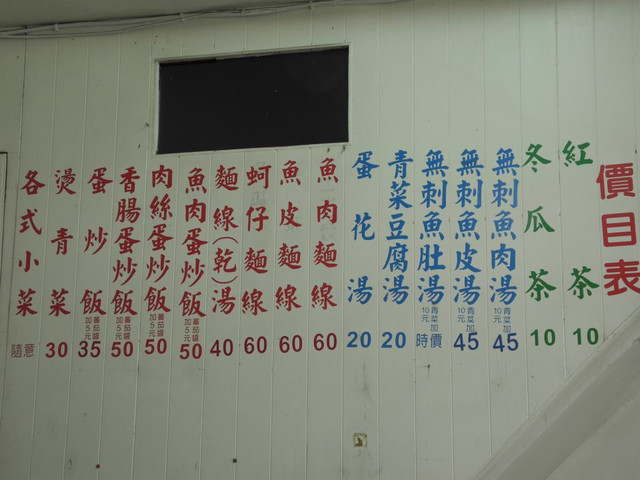 價目表
紅茶 10
冬瓜茶 10
無刺魚肉湯 青菜加10元 45
無刺魚皮湯 青菜加10元 45
無刺魚肚湯 青菜加10元 時價
青菜豆腐湯 20
蛋花湯 20
魚肉麵線 60
魚皮麵線 60
蚵仔麵線 60
麵線(乾)湯 40
魚肉蛋炒飯 蕃茄醬加5元 50
肉絲蛋炒飯 蕃茄醬加5元 50
香腸蛋炒飯 蕃茄醬加5元 50
蛋炒飯 蕃茄醬加5元 35
燙青菜 30
各式小菜 隨意